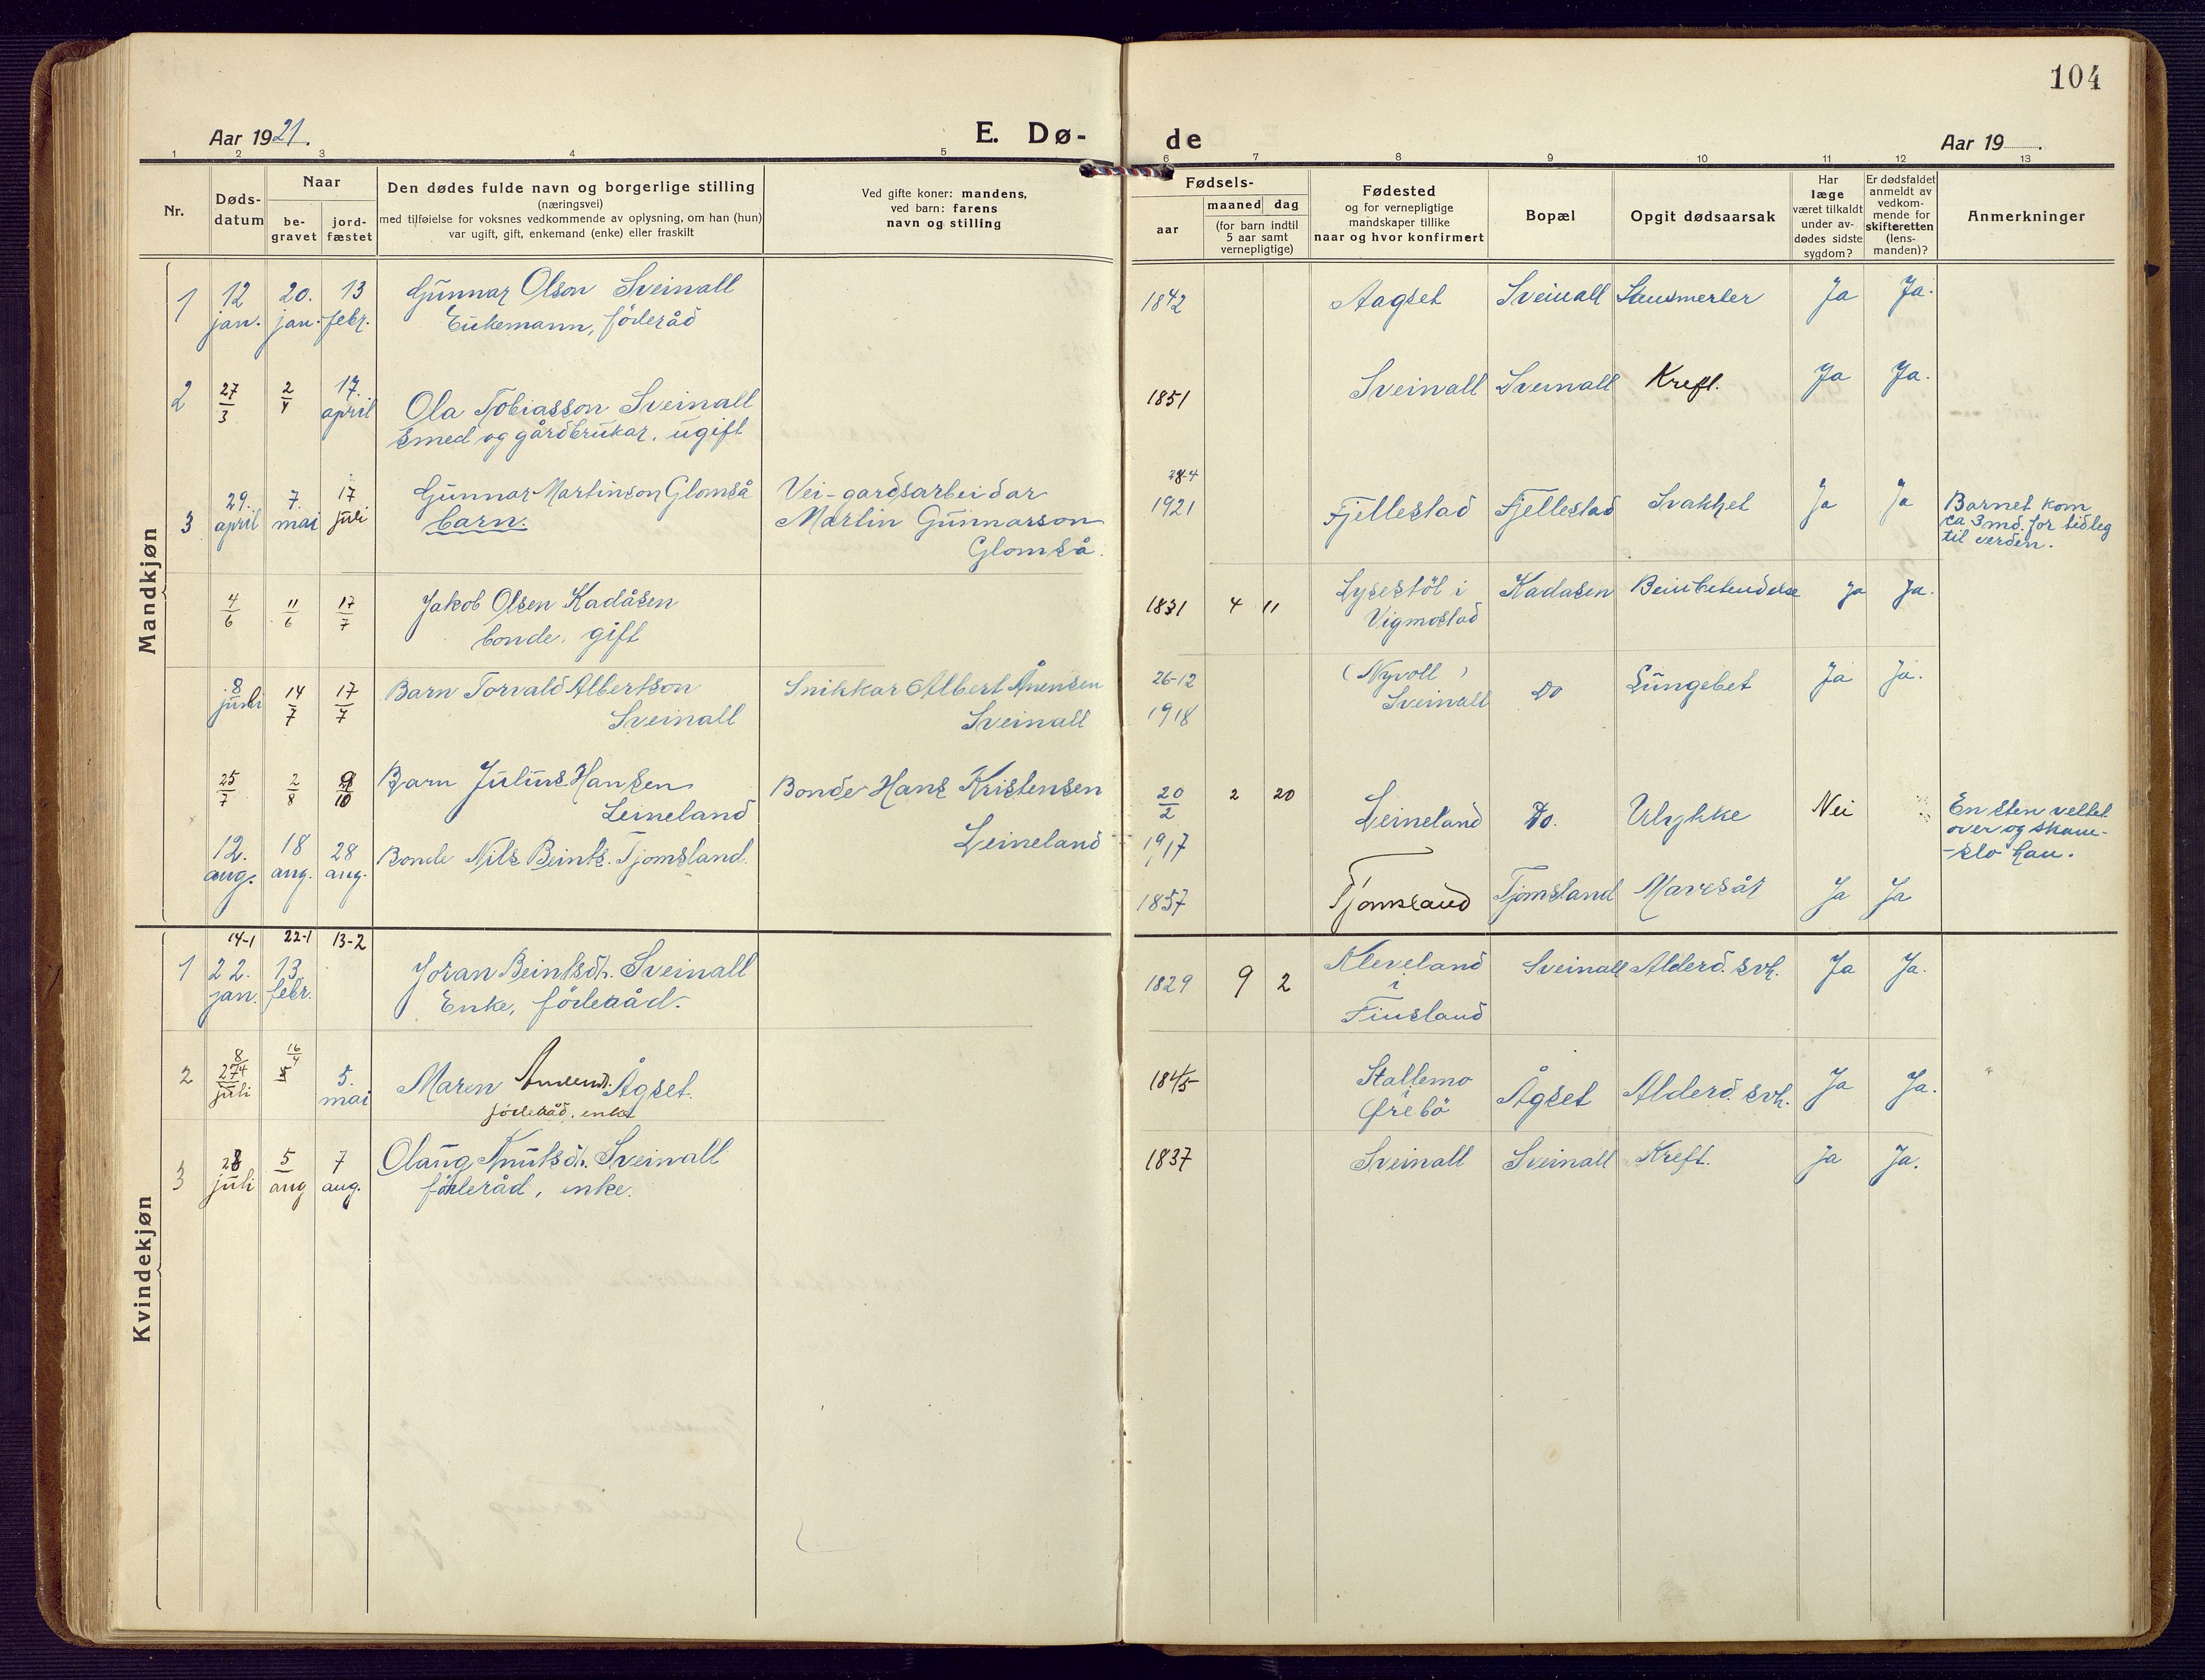 104
Aar 1921.
E. Dø-
de
Aar 19
1 2 3 4 5 6 7 8 9 10 11 12 13
Nr.
Døds-
datum
Naar
be-
gravet
jord-
fæstet
Den dødes fulde navn og borgerlige stilling
(næringsvei)
med tilføielse for voksnes vedkommende av oplysning, om han (hun)
var ugift, gift, enkemand (enke) eller fraskilt
Ved gifte koner: mandens,
ved barn: farens
navn og stilling
Fødsels-
aar
maaned dag
(for barn indtil
5 aar samt
vernepligtige)
Fødested
og for vernepligtige
mandskaper tillike
naar og hvor konfirmert
Bopæl
Opgit dødsaarsak
Har
læge
været tilkaldt
under av-
dødes sidste
sygdom?
Er dødsfaldet
anmeldt av
vedkom-
mende for
skifteretten
(lens-
manden)?
Anmerkninger
Mandkjøn
1 12 20. 13 Gunnar Olson Sveinall 1842 Aagset Sveinall Ja Ja.
jan. jan. febr. Enkemann, föderåd
2 27/3 2/4 17. april Ola Tobiasson Sveinall 1851 Sveinall Sveinall Kreft. Ja Ja.
Smed og gårdbrukar, ugift
3 29. april 7. mai 17 juli Gunnar Martinson Glomså Vei-gardsarbeidar 28-4 1921 Fjellestad Fjellestad Svakhet Ja Ja Barnet kom
barn. Martin Gunnarson ca 3 md. for tidleg
Glomså. til verden.
4/6 11/6 17/7 Jakob Olsen Kadåsen 1831 4 11 Lysestöl i Kadasen Ja Ja.
bonde, gift Vigmostad
8 juli 14/7 17/7 Barn Torvald Albertson Snikkar Albert Ånensen 26-12 (Nyvoll) Do Lungebet Ja Ja.
Sveinall Sveinall 1918 Sveinall
25/7 2/8 9/10 Barn Julius Hansen Bonde Hans Kristensen 20/2 2 20 Leineland Do. Ulykke Nei En sten veltet
Leineland Leineland 1917 over og skam-
-slo han.
12. aug. 18 aug. 28 aug. Bonde Nils Beints. Tjomsland. 1857 Tjomsland Tjomsland Mavesår Ja Ja
Kvindekjøn
14-1 22-1 13-2
1 22. jan. 13. febr. Joran Beintsdt. Sveinall 1829 9 2 Kleveland Sveinall Alderd. svk. Ja Ja.
Enke, föderåd. i
Finsland
2 8/4 16/4 5. mai Maren Ågset. 1845 Stallemo Ågset Alderd. svk. Ja Ja.
juli föderåd, enke Örebö
3 28 juli 5 aug 7 aug. Olaug Knutsdt. Sveinall 1837 Sveinall Sveinall Kreft. Ja Ja.
föderåd, enke.